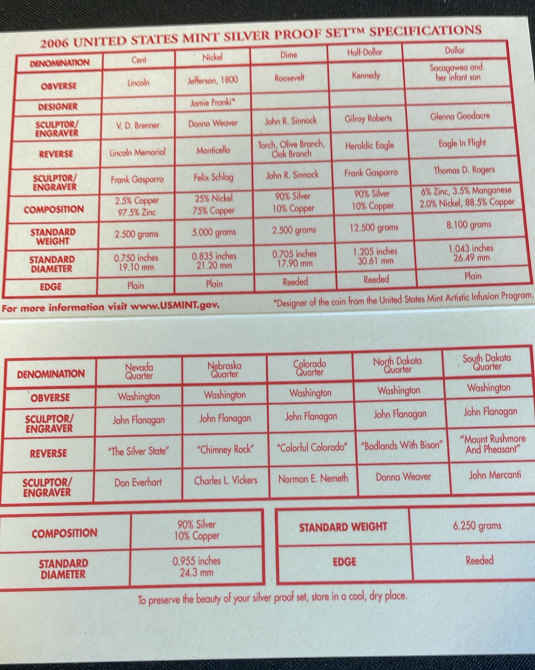 2006 UNITED STATES MINT SILVER PROOF SET™ SPECIFICATIONS
DENOMINATION Cent Nickel Dime Half-Dollar Dollar
OBVERSE Lincoln Jefferson, 1800 Roosevelt Kennedy Sacagawea and her infant son
DESIGNER Jamie Franki*
SCULPTOR/ ENGRAVER V. D. Brenner Donna Weaver John R. Sinnock Gilroy Roberts Glenna Goodacre
REVERSE Lincoln Memorial Monticello Torch, Olive Branch, Oak Branch Heraldic Eagle Eagle In Flight
SCULPTOR/ ENGRAVER Frank Gasparro Felix Schlag John R. Sinnock Frank Gasparro Thomas D. Rogers
COMPOSITION 2.5% Copper 97.5% Zinc 25% Nickel 75% Copper 90% Silver 10% Copper 90% Silver 10% Copper 6% Zinc, 3.5% Manganese 2.0% Nickel, 88.5% Copper
STANDARD WEIGHT 2.500 grams 5.000 grams 2.500 grams 12.500 grams 8.100 grams
STANDARD DIAMETER 0.750 inches 19.10 mm 0.835 inches 21.20 mm 0.705 inches 17.90 mm 1.205 inches 30.61 mm 1.043 inches 26.49 mm
EDGE Plain Plain Reeded Reeded Plain
For more information visit www.USMINT.gov. *Designer of the coin from the United States Mint Artistic Infusion Program.
DENOMINATION Nevada Quarter Nebraska Quarter Colorado Quarter North Dakota Quarter South Dakota Quarter
OBVERSE Washington Washington Washington Washington Washington
SCULPTOR/ ENGRAVER John Flanagan John Flanagan John Flanagan John Flanagan John Flanagan
REVERSE "The Silver State" "Chimney Rock" "Colorful Colorado" "Badlands With Bison" "Mount Rushmore And Pheasant"
SCULPTOR/ ENGRAVER Don Everhart Charles L. Vickers Norman E. Nemeth Donna Weaver John Mercanti
COMPOSITION 90% Silver 10% Copper STANDARD WEIGHT 6.250 grams
STANDARD DIAMETER 0.955 inches 24.3 mm EDGE Reeded
To preserve the beauty of your silver proof set, store in a cool, dry place.